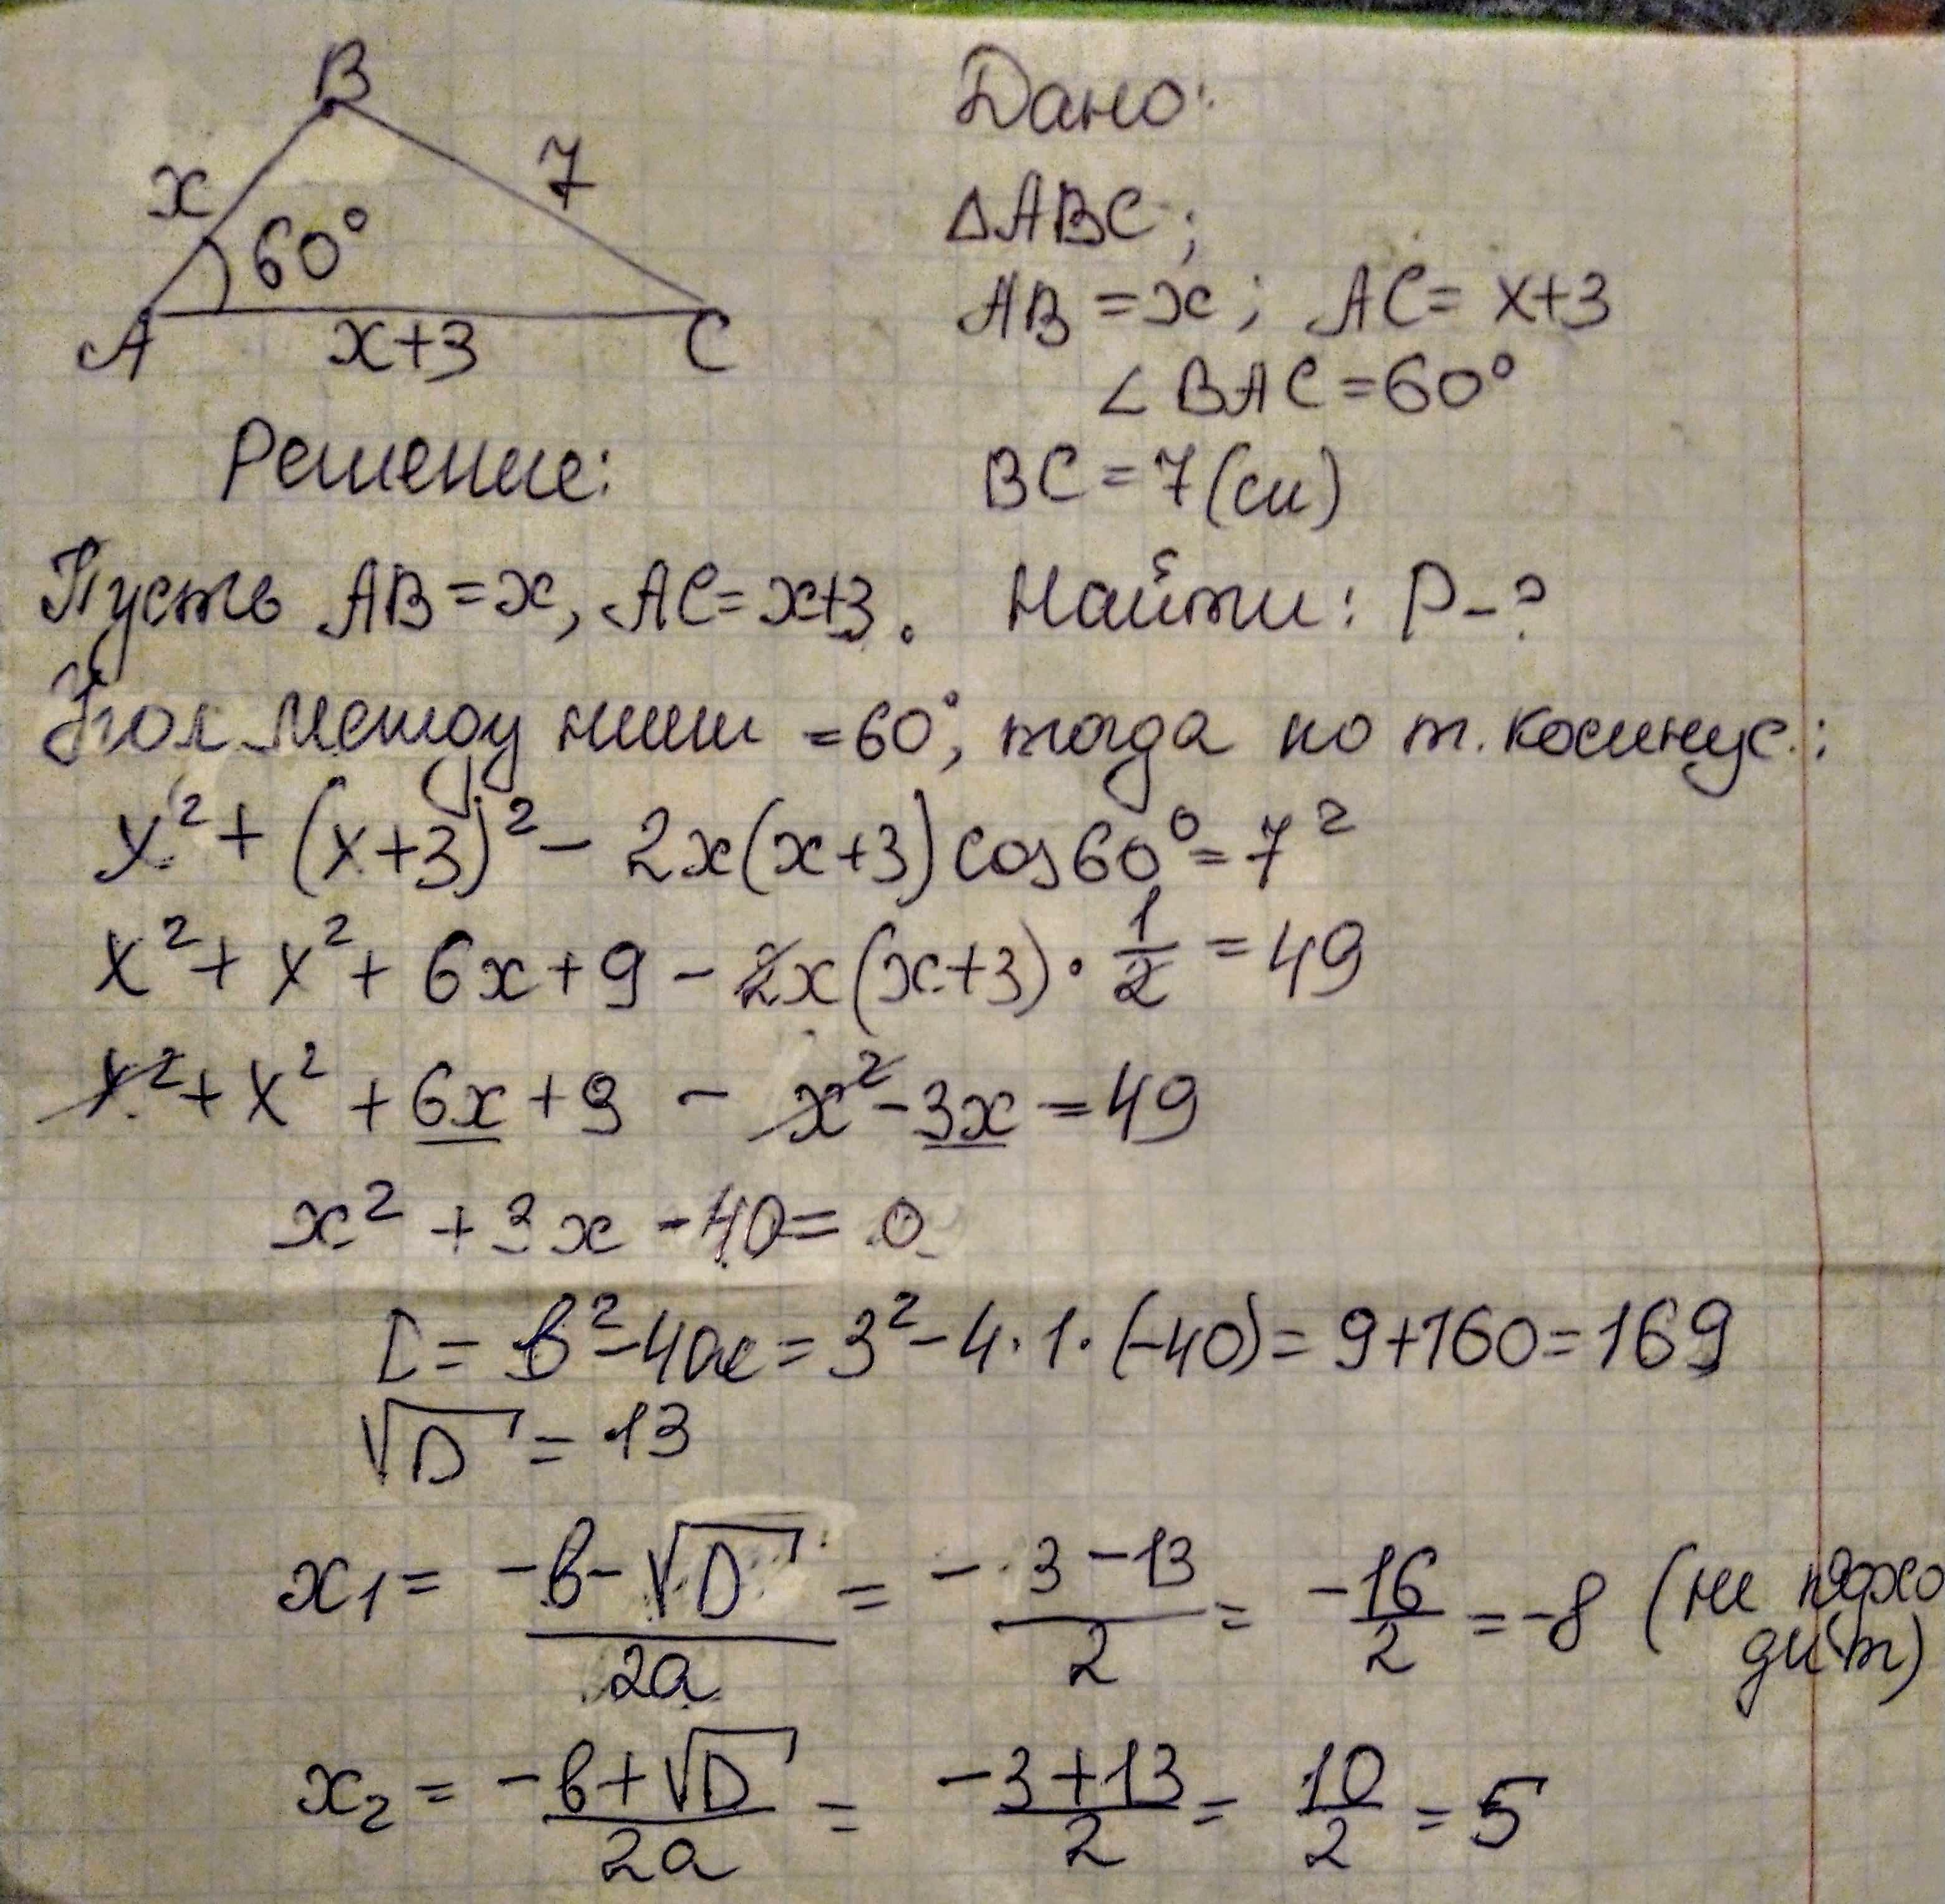 B
x
7
60°
A
x+3
C
Дано:
△ABC;
AB = x; AC = x+3
∠BAC = 60°
BC = 7(см)
Решение:
Пусть AB = x, AC = x+3.
Найти: P-?
Угол между ними = 60°, тогда по т. косинус.:
x² + (x+3)² - 2x(x+3) cos60° = 7²
x² + x² + 6x + 9 - 2x(x+3) · 1/2 = 49
x² + x² + 6x + 9 - x² - 3x = 49
x² + 3x - 40 = 0
D = b² - 4ac = 3² - 4·1·(-40) = 9+160 = 169
√D = 13
x₁ = (-b-√D)/2a = (-3-13)/2 = -16/2 = -8 (не подходит)
x₂ = (-b+√D)/2a = (-3+13)/2 = 10/2 = 5